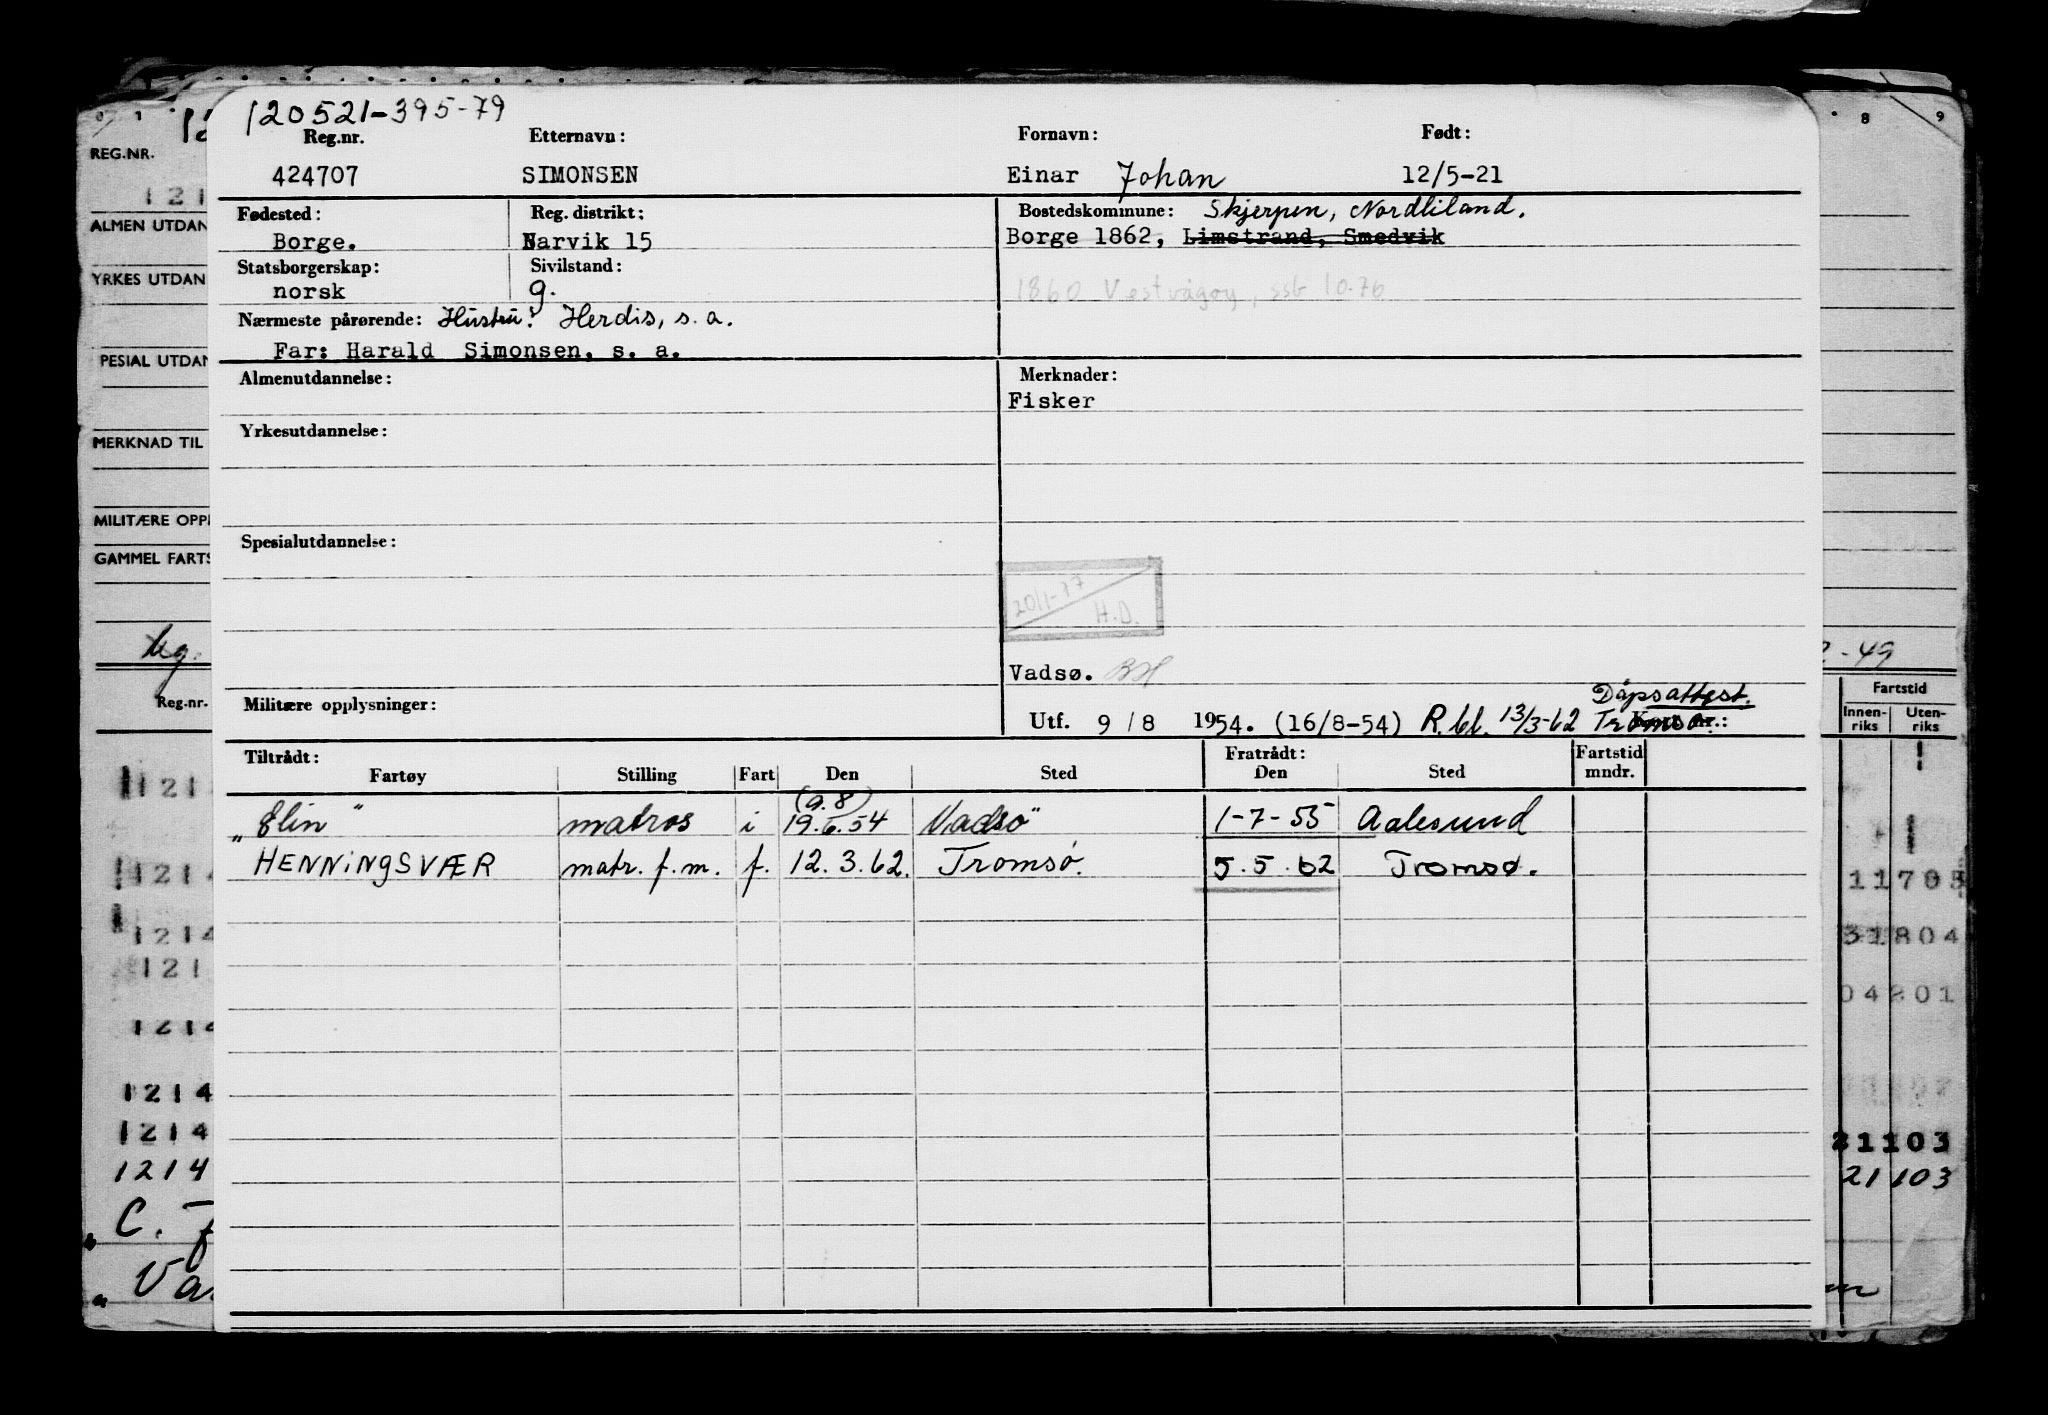 120521-395-79
Reg.nr. Etternavn: Fornavn: Født:
424707 SIMONSEN Einar Johan 12/5-21
Fødested: Reg. distrikt: Bostedskommune: Skjerpen, Nordliland.
Borge. Narvik 15 Borge 1862, Limstrand, Smedvik
Statsborgerskap: Sivilstand:
norsk g. 1860 Vestvågøy, ssb 10.76
Nærmeste pårørende: Hustru: Herdis, s.a.
Far: Harald Simonsen, s. a.
Almenutdannelse: Merknader:
Fisker
Yrkesutdannelse:
Spesialutdannelse:
20/1-77
H.D.
Vadsø. BH
Dåpsattest.
Militære opplysninger: Utf. 9/8 1954. (16/8-54) R.bl. 13/3-62 Tromsø.:
Tiltrådt: Fratrådt: Fartstid
Fartøy Stilling Fart Den Sted Den Sted mndr.
(9.8)
"Elin" matros i 19.6.54 Vadsø 1-7-55 Aalesund
HENNINGSVÆR matr. f.m. f. 12.3.62. Tromsø. 5.5.62 Tromsø.
REG.NR.
121
ALMEN UTDAN
YRKES UTDAN
PESIAL UTDAN
MERKNAD TIL
MILITÆRE OPPL
GAMMEL FARTS
Reg.nr.
1214
1214
1214
121
1214
1214
1214
1214
C.
Va
8 9
-49
Fartstid
Innen-riks Uten-riks
11703
31804
04201
21103
21103